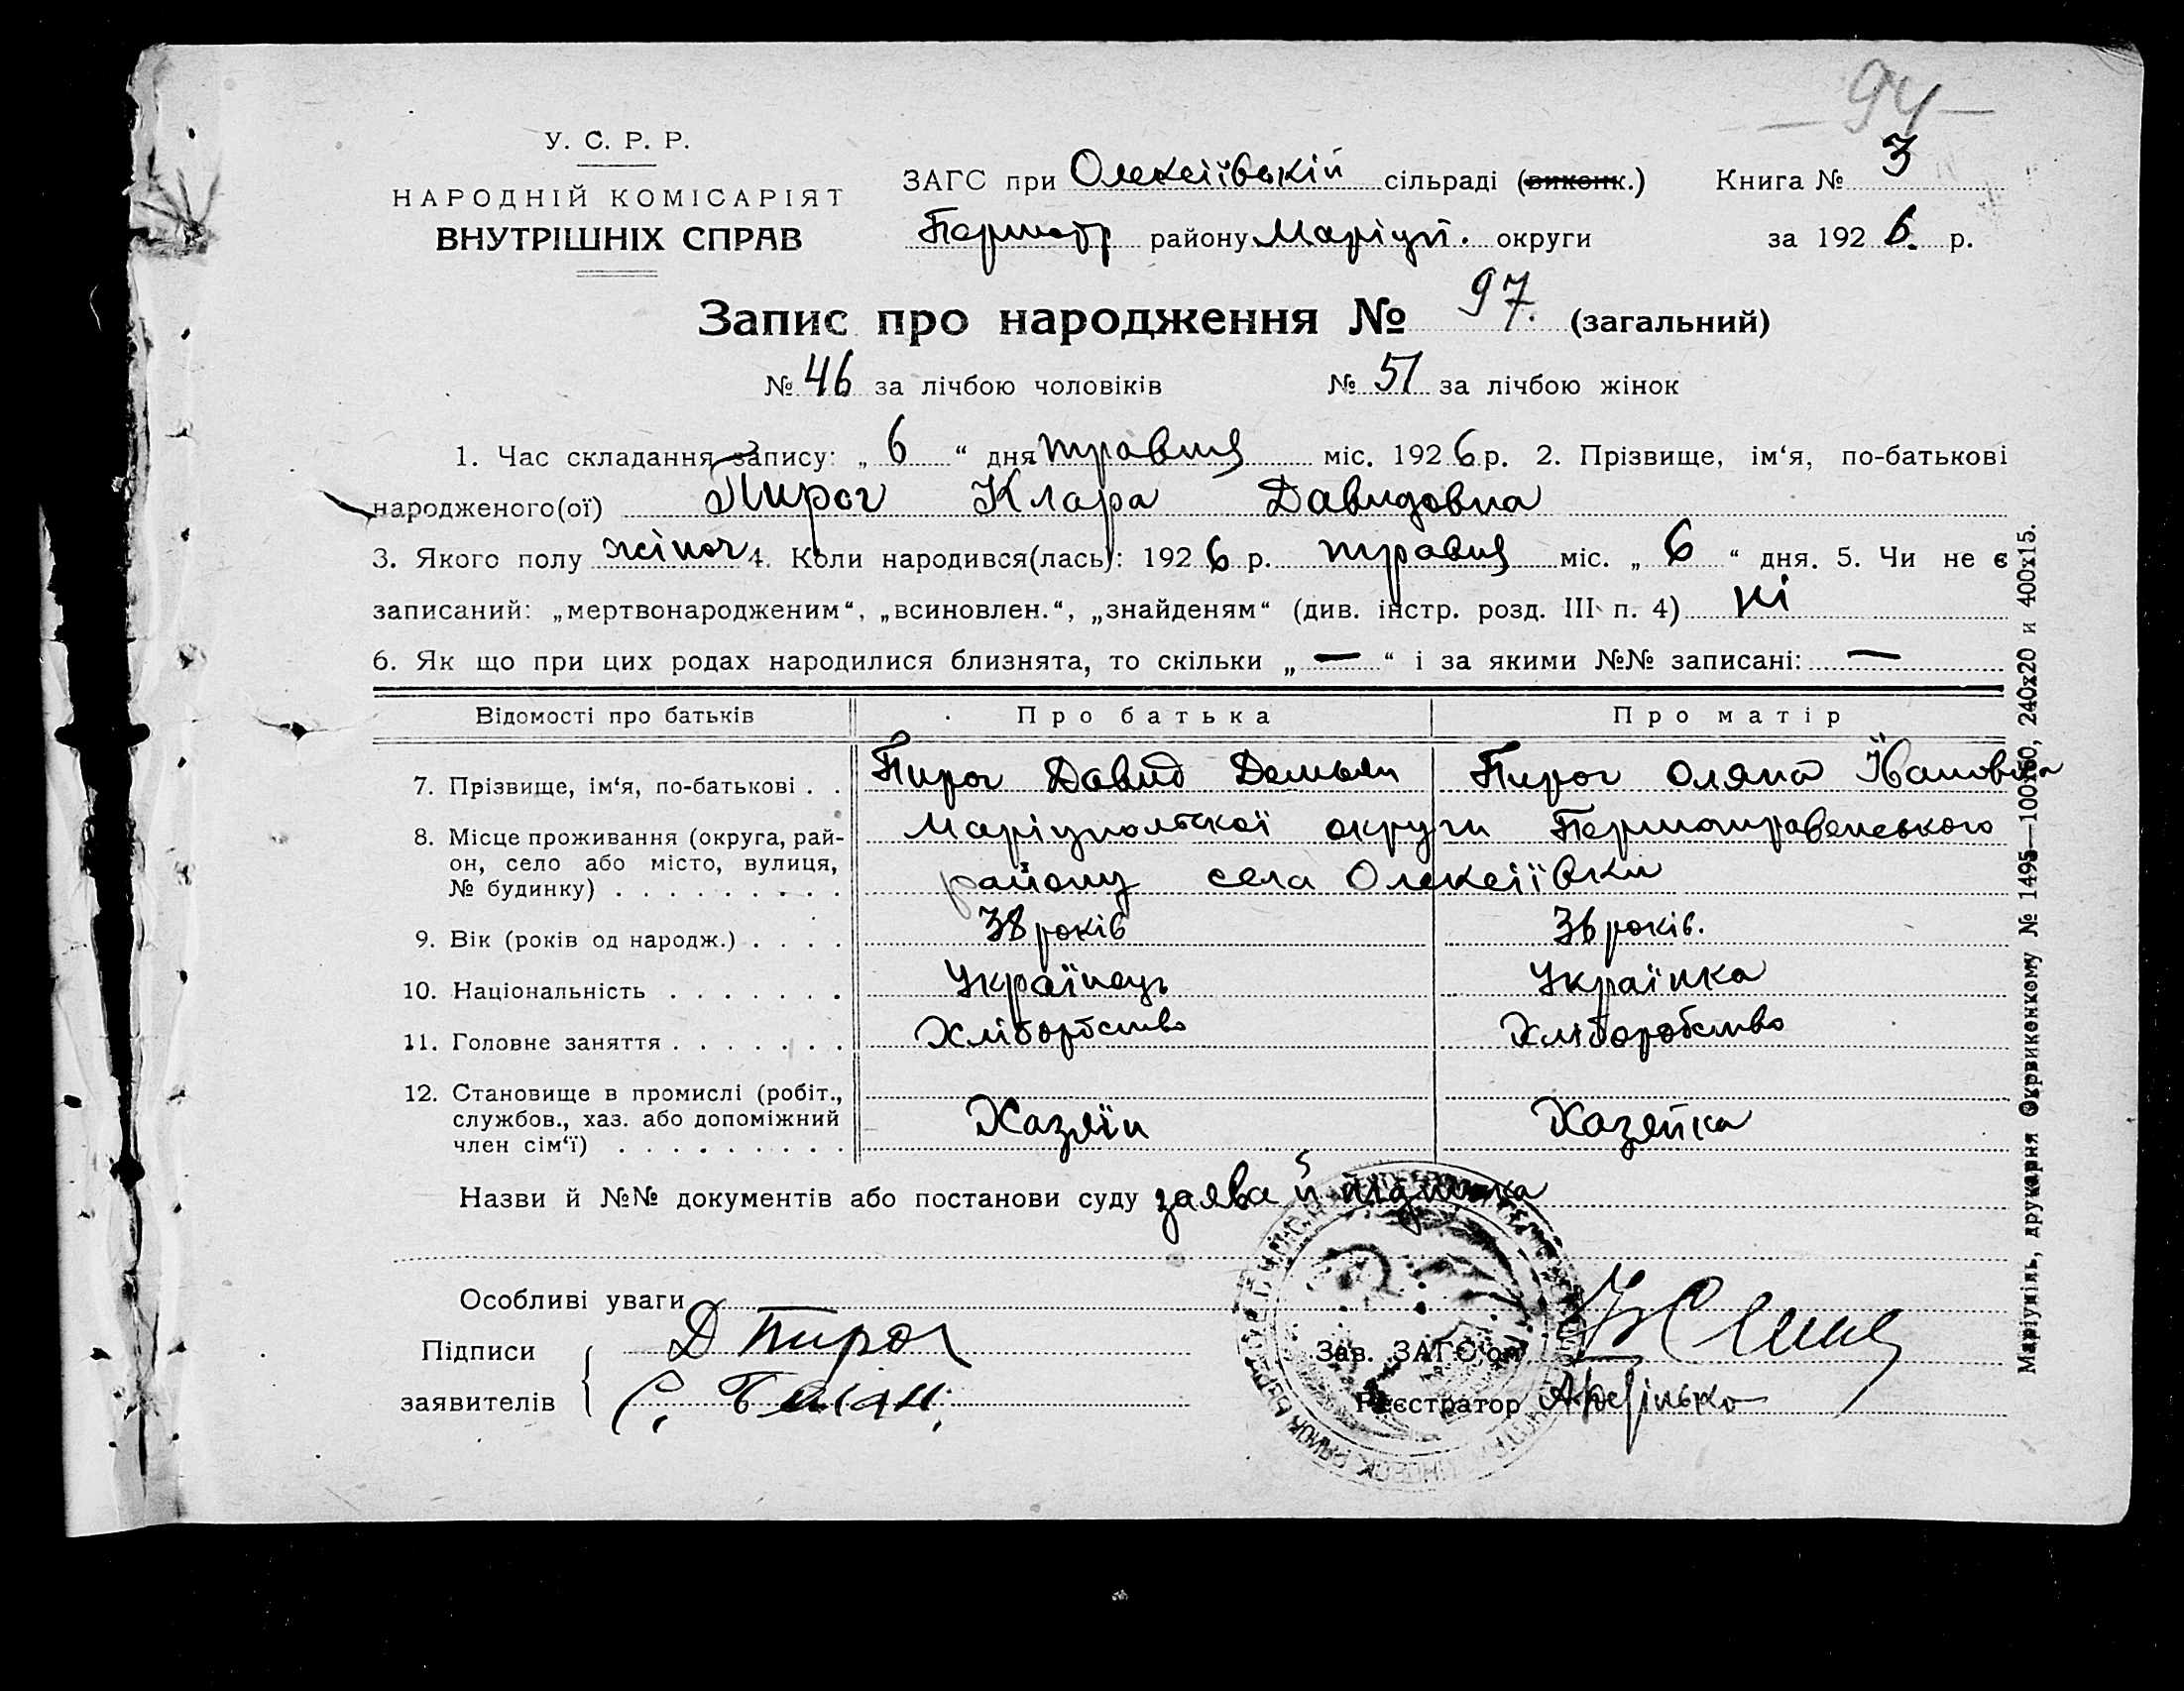 94
У. С. Р. Р.
НАРОДНІЙ КОМІСАРІЯТ
ВНУТРІШНІХ СПРАВ
ЗАГС при Олексіївській сільраді (виконк.) Книга № 3
Першотр району Маріуп. округи за 1926. р.
Запис про народження № 97. (загальний)
№ 46 за лічбою чоловіків № 51 за лічбою жінок
1. Час складання запису: „6“ дня травня міс. 1926 р. 2. Прізвище, ім‘я, по-батькові
народженого(ої) Пирог Клара Давидовна
3. Якого полу жіноч 4. Коли народився(лась): 1926 р. травня міс. „6“ дня. 5. Чи не є
записаний: „мертвонародженим“, „всиновлен.“, „знайденям“ (див. інстр. розд. III п. 4) ні
6. Як що при цих родах народилися близнята, то скільки „—“ і за якими №№ записані: —
Відомості про батьків Про батька Про матір
7. Прізвище, ім‘я, по-батькові . . Пирог Давид Демьян Пирог Оляна Івановна
8. Місце проживання (округа, рай- Маріупольскої округи Першотравенського
он, село або місто, вулиця,
№ будинку) . . . . . . . . . району села Олексіївки
9. Вік (років од народж.) . . . . 38 років 36 років.
10. Національність . . . . . . . Українець Українка
11. Головне заняття . . . . . . . Хліборбство Хліборобство
12. Становище в промислі (робіт.,
службов., хаз. або допоміжний
член сім‘ї) . . . . . . . . . Хазяїн Хазяйка
Назви й №№ документів або постанови суду заява й підписка
Особливі уваги
Підписи Д Пирог Зав. ЗАГС‘ом
заявителів С. Реєстратор
Маріупіль, друкарня Окрвиконкому № 1495—100х60, 240х20 и 400х15.